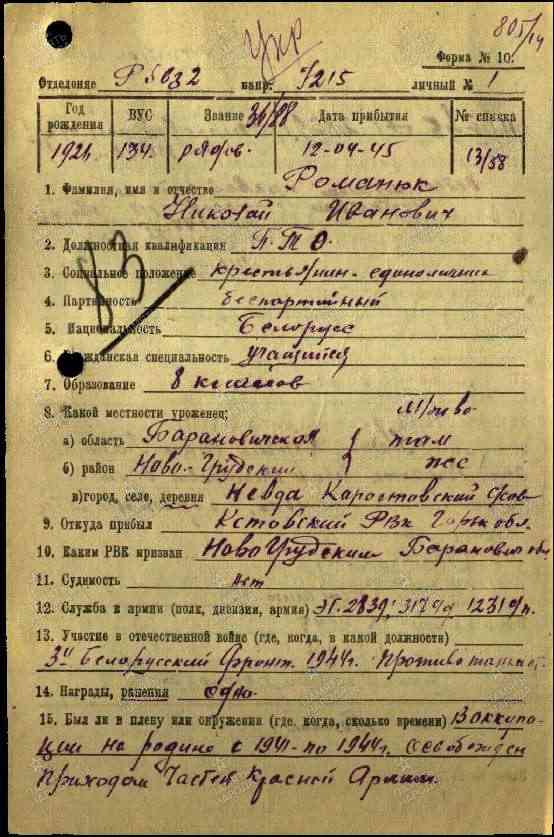 805/14
Укр
Форма № 10.
Отделение Р5вз2 напр. 7215 личный № 1
Год рождения ВУС Звание 34/88 Дата прибытия № списка
1924 134. рядов. 12-04-45 13/58
1. Фамилия, имя и отчество Романюк
Николай Иванович
2. Должностная квалификация П.Т.О.
3. Социальное положение крестьянин-единоличник
4. Партийность беспартийный
83
5. Национальность Белорусс
6. Гражданская специальность учащийся
7. Образование 8 классов
8. Какой местности уроженец: М/жтво
а) область Барановичская } там
б) район Ново-Грудский } же
в) город, село, деревня Невда Каростовский с/сов
9. Откуда прибыл Кстовский РВК Горьк обл.
10. Каким РВК призван НовоГрудским Баранович обл
11. Судимость нет
12. Служба в армии (полк, дивизия, армия) 317 сд 1231 сп.
13. Участие в отечественной войне (где, когда, в какой должности)
3й Белорусский Фронт 1944г. Противотанков.
14. Награды, ранения одно.
15. Был ли в плену или окружении (где, когда, сколько времени) В оккупа-
ции на родине с 1941-по 1944г. освобожден
приходом Частей Красной Армии.